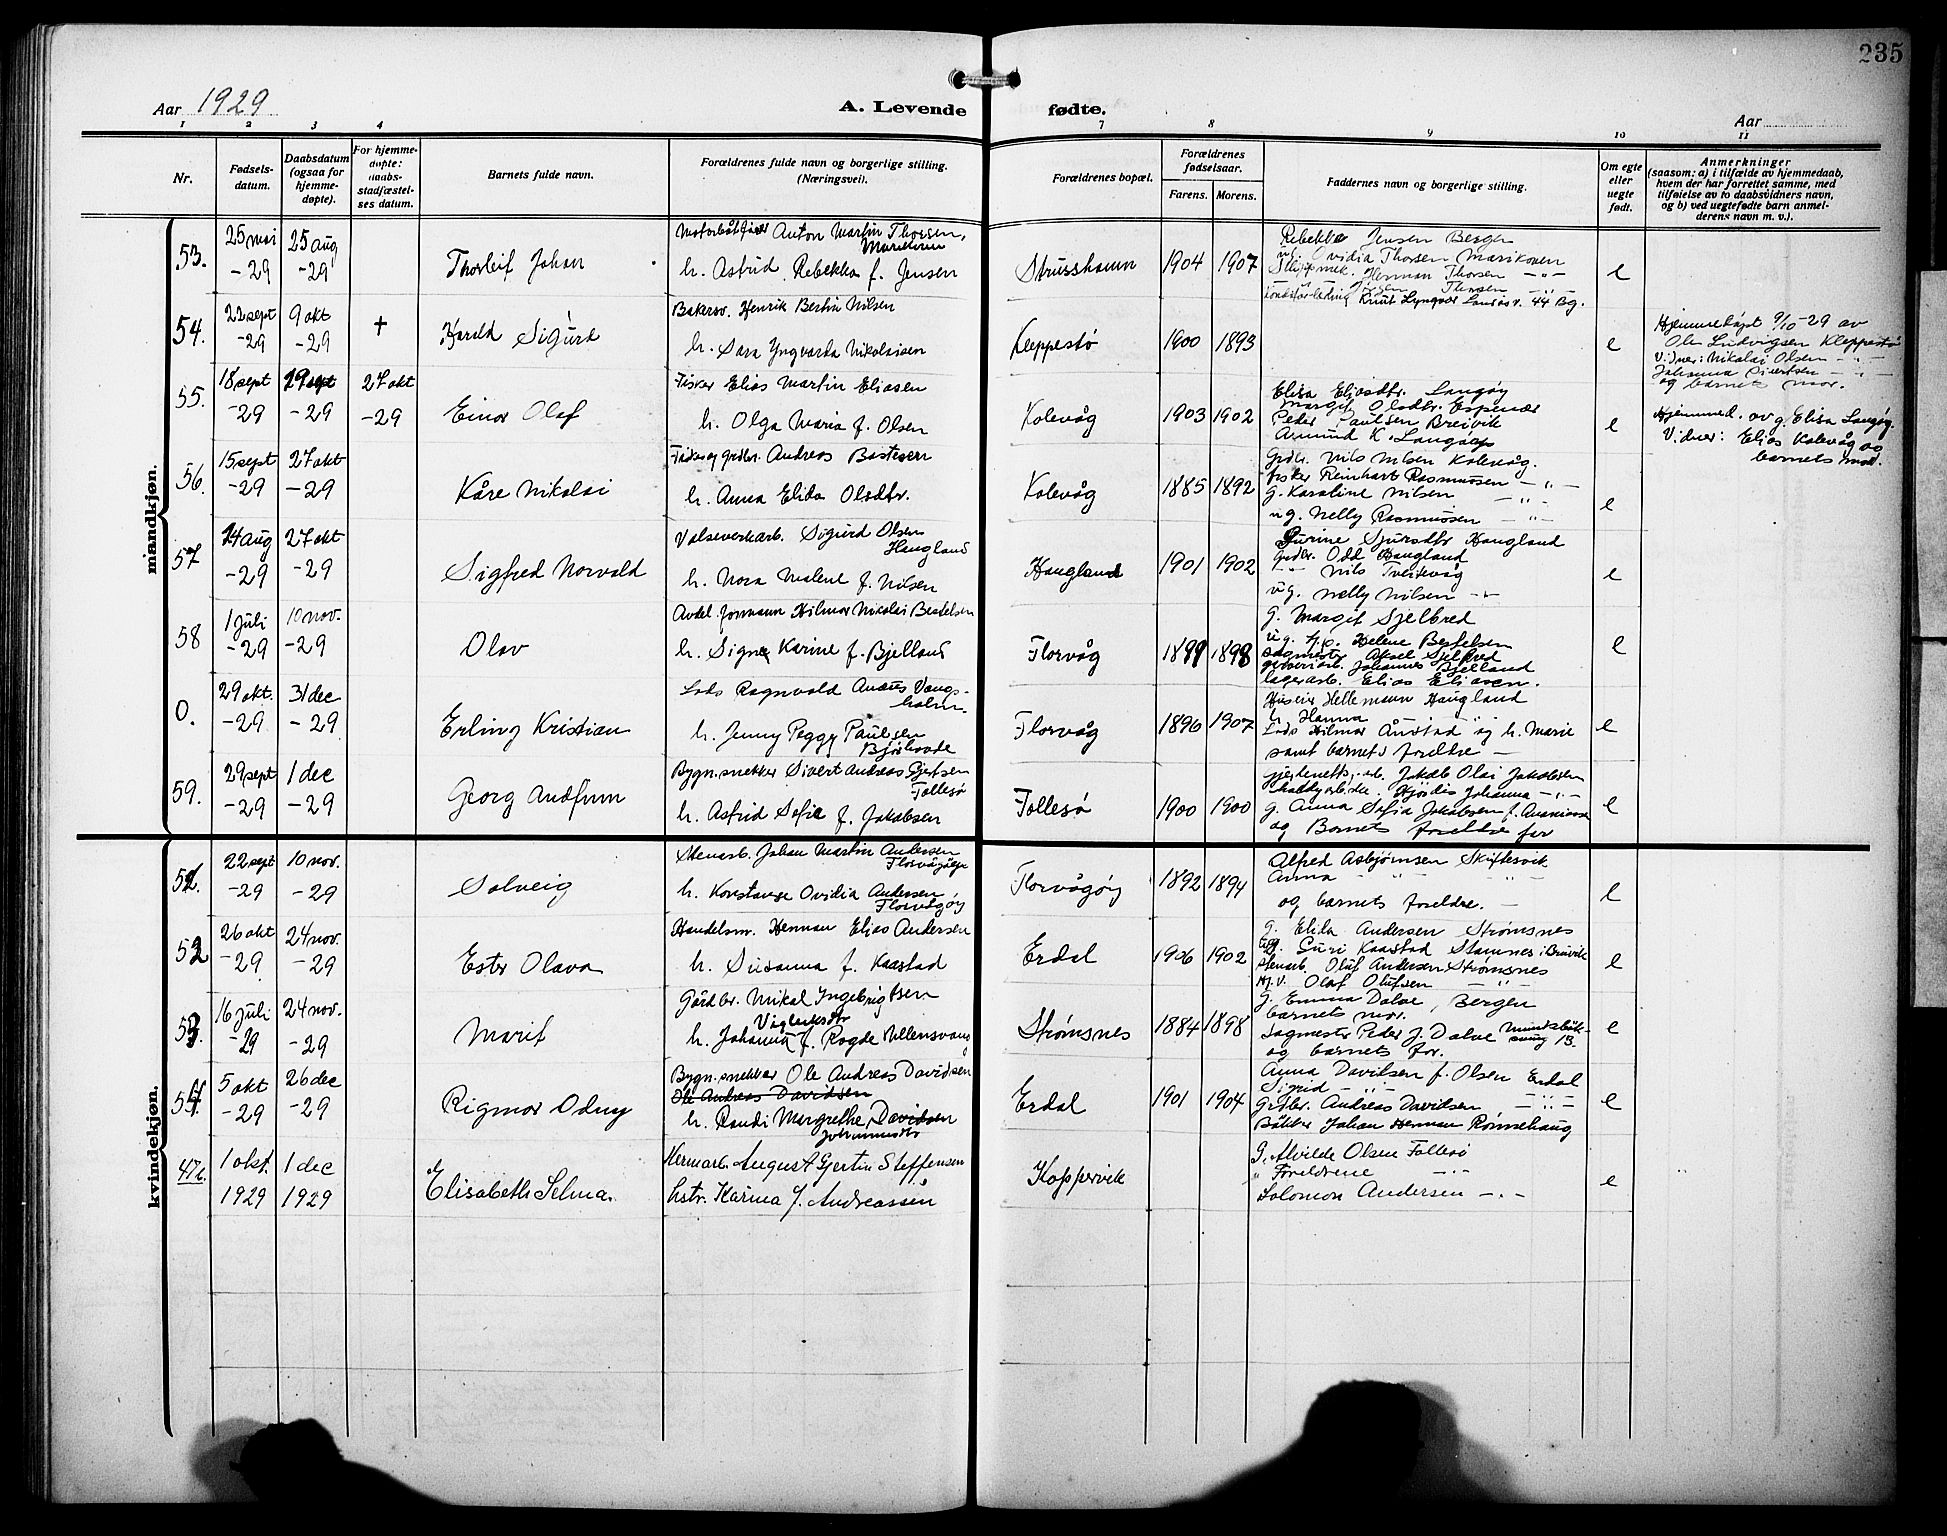 235
Aar 1929
A. Levende fødte.
Aar
1 2 3 4 7 8 9 10 11
Nr.
Fødsels-
datum.
Daabsdatum
(ogsaa for
hjemme-
døpte).
For hjemme-
døpte:
daabs-
stadfæstel-
ses datum.
Barnets fulde navn.
Forældrenes fulde navn og borgerlige stilling.
(Næringsvei).
Forældrenes bopæl.
Forældrenes
fødselsaar.
Farens. Morens.
Faddernes navn og borgerlige stilling.
Om egte
eller
uegte
født.
Anmerkninger
(saasom: a) i tilfælde av hjemmedaab,
hvem der har forrettet samme, med
tilføielse av to daabsvidners navn,
og b) ved uegtefødte barn anmel-
derens navn m. v.).
mandkjøn.
53. 25 mai -29 25 aug -29
Thorleif Johan
Anton Martin Thorsen,
h. Astrid Rebekka f. Jensen
Strusshamn 1904 1907
Rebekka Jensen Bergen
ug. Ovidia Thorsen Marikoven
Herman Thorsen -"-
Thorsen -"-
Knut Lyngvær 44 Bg.
e
54. 22 sept -29 9 okt -29 +
Harald Sigurd
Bakersv. Henrik Bertin Nilsen
h. Sara Yngvarda Nikolaisen
Kleppestø 1900 1893 e
Hjemmedøpt 9/10-29 av
Ole Ludvigsen Kleppestø
Vidner: Nikolai Olsen -"-
Johanna Sivertsen -"-
og barnets mor.
55. 18 sept -29 29 sept -29 27 okt -29
Einar Olaf
Fisker Elias Martin Eliasen
h. Olga Maria f. Olsen
Kolevåg 1903 1902
Elisa Eliasdtr. Langøy
Margit Olsdtr. Espenær
Peder Paulsen Breivik
Amund K. Langøy
e
Hjemmed. av g. Elisa Langøy.
Vidner: Elias Kolevåg og
barnets mor.
56. 15 sept -29 27 okt -29
Kåre Nikolai
Fisker og grdbr. Andreas Bastesen
h. Anna Elida Olsdtr.
Kolevåg 1885 1892
Grdbr. Nils Nilsen Kolevåg.
fisker Reinhart Rasmussen -"-
g. Karoline Nilsen -"-
ug. Nelly Rasmussen -"-
e
57 24 aug -29 27 okt -29
Sigfred Norvald
Valseverkarb. Sigurd Olsen
Haugland
h. Nora Malene f. Nilsen
Haugland 1901 1902
Gurine Sjursdtr Haugland
Grdbr. Odd Haugland
-"- Nils Tveitevåg
ug. Nelly Nilsen -"-
e
58 1 juli -29 10 nov. -29
Olav
Avdel. formann Hilmar Nikolai Bertelsen
h. Signe Karine f. Bjelland
Florvåg 1899 1898
g. Margit Sjelbred
ug. Helene Bertelsen
sagmester Aksel Sjelbred
Johannes Bjelland
lagerarb. Elias Eliasen.
e
0. 29 okt. -29 31 dec -29
Erling Kristian
Lods Ragnvald Andreas Vangs-
holm.
h. Jenny Peggy Paulsen
Bjørhovde
Florvåg 1896 1907
Hellemann Haugland
h. Hanna
Lods Hilmar Ånstad og h. Marie
samt barnets foreldre -
e
59. 29 sept -29 1 dec -29
Georg Andfinn
Bygn.snekker Sivert Andreas Gjertsen
Follesø
h. Astrid Sofie f. Jakobsen
Follesø 1900 1900
Jakob Olai Jakobsen
Hjørdis Johanna -"-
g. Anna Sofia Jakobsen f.
og Barnets foreldre før
e
kvindekjøn.
51. 22 sept -29 10 nov. -29
Solveig
Stenarb. Johan Martin Andersen
Florvågøy
h. Konstanse Ovidia Andersen
Florvågøy
Florvågøy 1892 1894
Alfred Asbjørnsen Skiftesvik
Anna -"- -"-
og barnets foreldre. -
e
52 26 okt -29 24 nov. -29
Ester Olava
Handelsm. Herman Elias Andersen
h. Susanna f. Kaastad
Erdal 1906 1902
g. Elida Andersen Strømsnes
ug. Guri Kaastad Stamnes i Bruvik
stenarb. Oluf Andersen Strømsnes
Olaf Olufsen -"-
e
53. 16 juli -29 24 nov. -29
Marit
Gårdbr. Mikal Ingebrigtsen
Vigleiksdtr
h. Johanna f. Rogde Ullensvang
Strømsnes 1884 1898
g. Emma Dalve, Bergen
barnets mor.
Sagmester Peder J. Dalve
og barnets far.
e
54. 5 okt -29 26 dec -29
Rigmor Odny
Bygn.snekker Ole Andreas Davidsen
Ole Andreas Davidsen
h. Randi Margrethe Davidsen
Johannesdtr
Erdal 1901 1904
Anna Davidsen f. Olsen Erdal
Sigrid -"- -"-
Grdbr. Andreas Davidsen -"-
Bøkker Johan Herman Rønnehaug
e
47c. 1 okt. 1929 1 dec 1929
Elisabeth Selma.
Hermarb. August Gjertin Steffensen
hstr. Karina f. Andreassen
Koppervik
G. Alvilde Olsen Follesø
" Foreldrene -"-
Salomon Andersen -"-
e